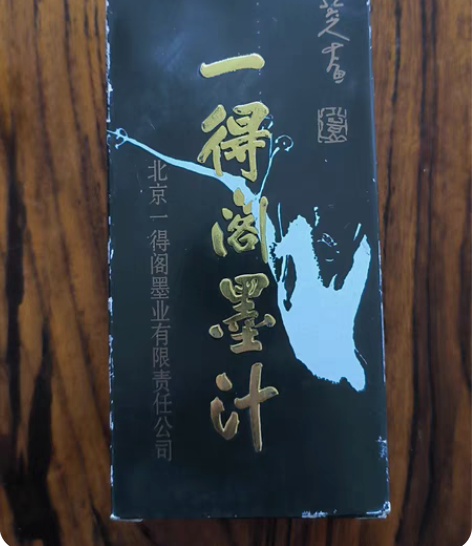 一得阁墨汁
北京一得阁墨业有限责任公司